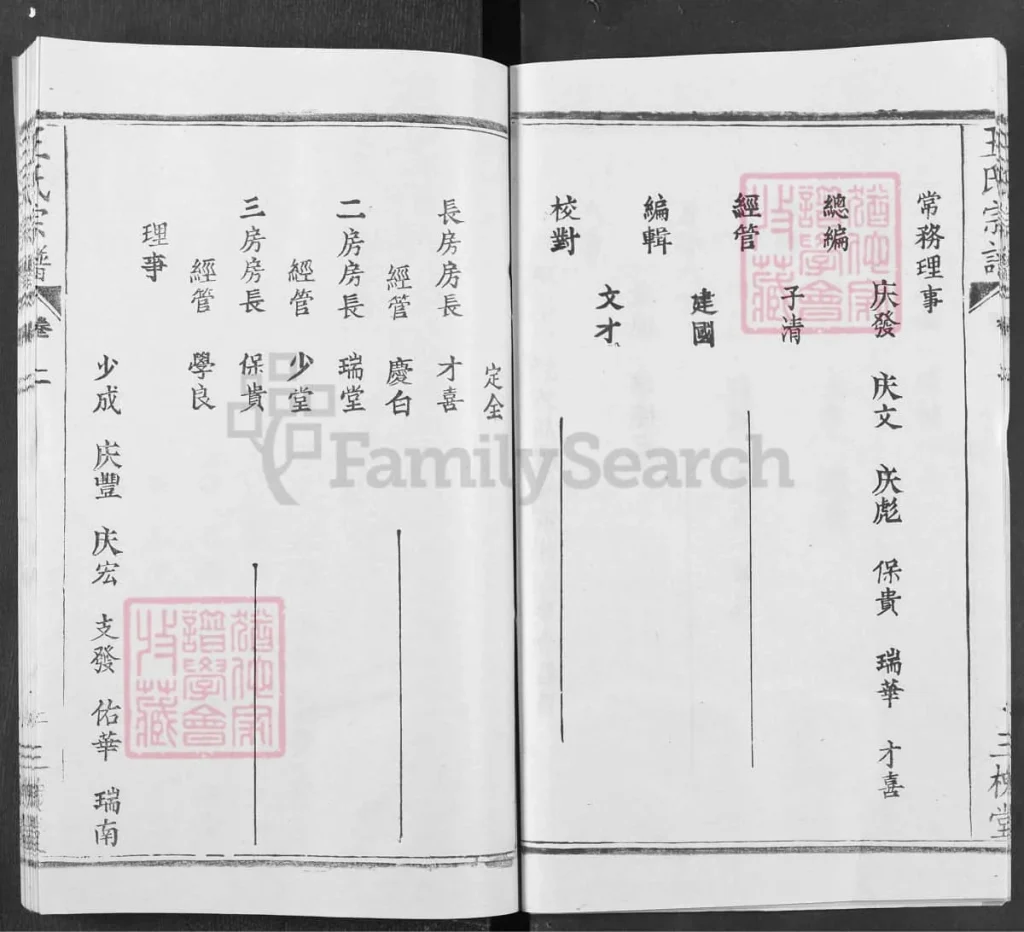 王氏宗譜
三槐堂
常務理事
庆發 庆文 庆彪 保貴 瑞華 才喜
總編
子清
經管
建國
編輯
文才
校對
定全
長房房長 才喜
經管 慶白
二房房長 瑞堂
經管 少堂
三房房長 保貴
經管 學良
理事
少成 庆豐 庆宏 支發 佑華 瑞南
王氏宗譜
卷二
FamilySearch